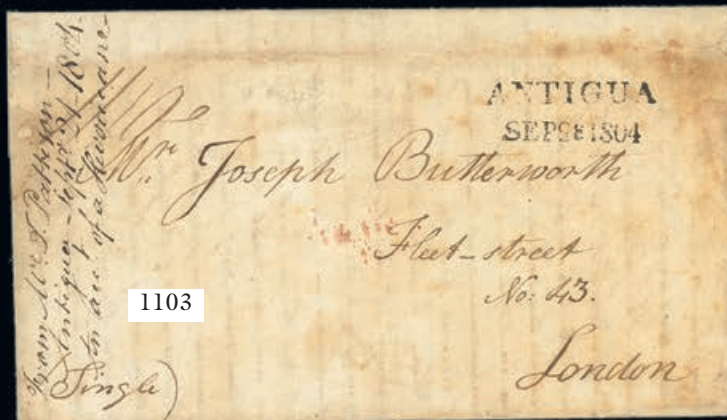 ANTIGUA
SEP 28 1804
Mr. Joseph Butterworth
Fleet-street
No: 43.
London
1103
From Mr. S. Patterson
Antigua - Sept. 21 1804
an acct. of a Hurricane
(Single)